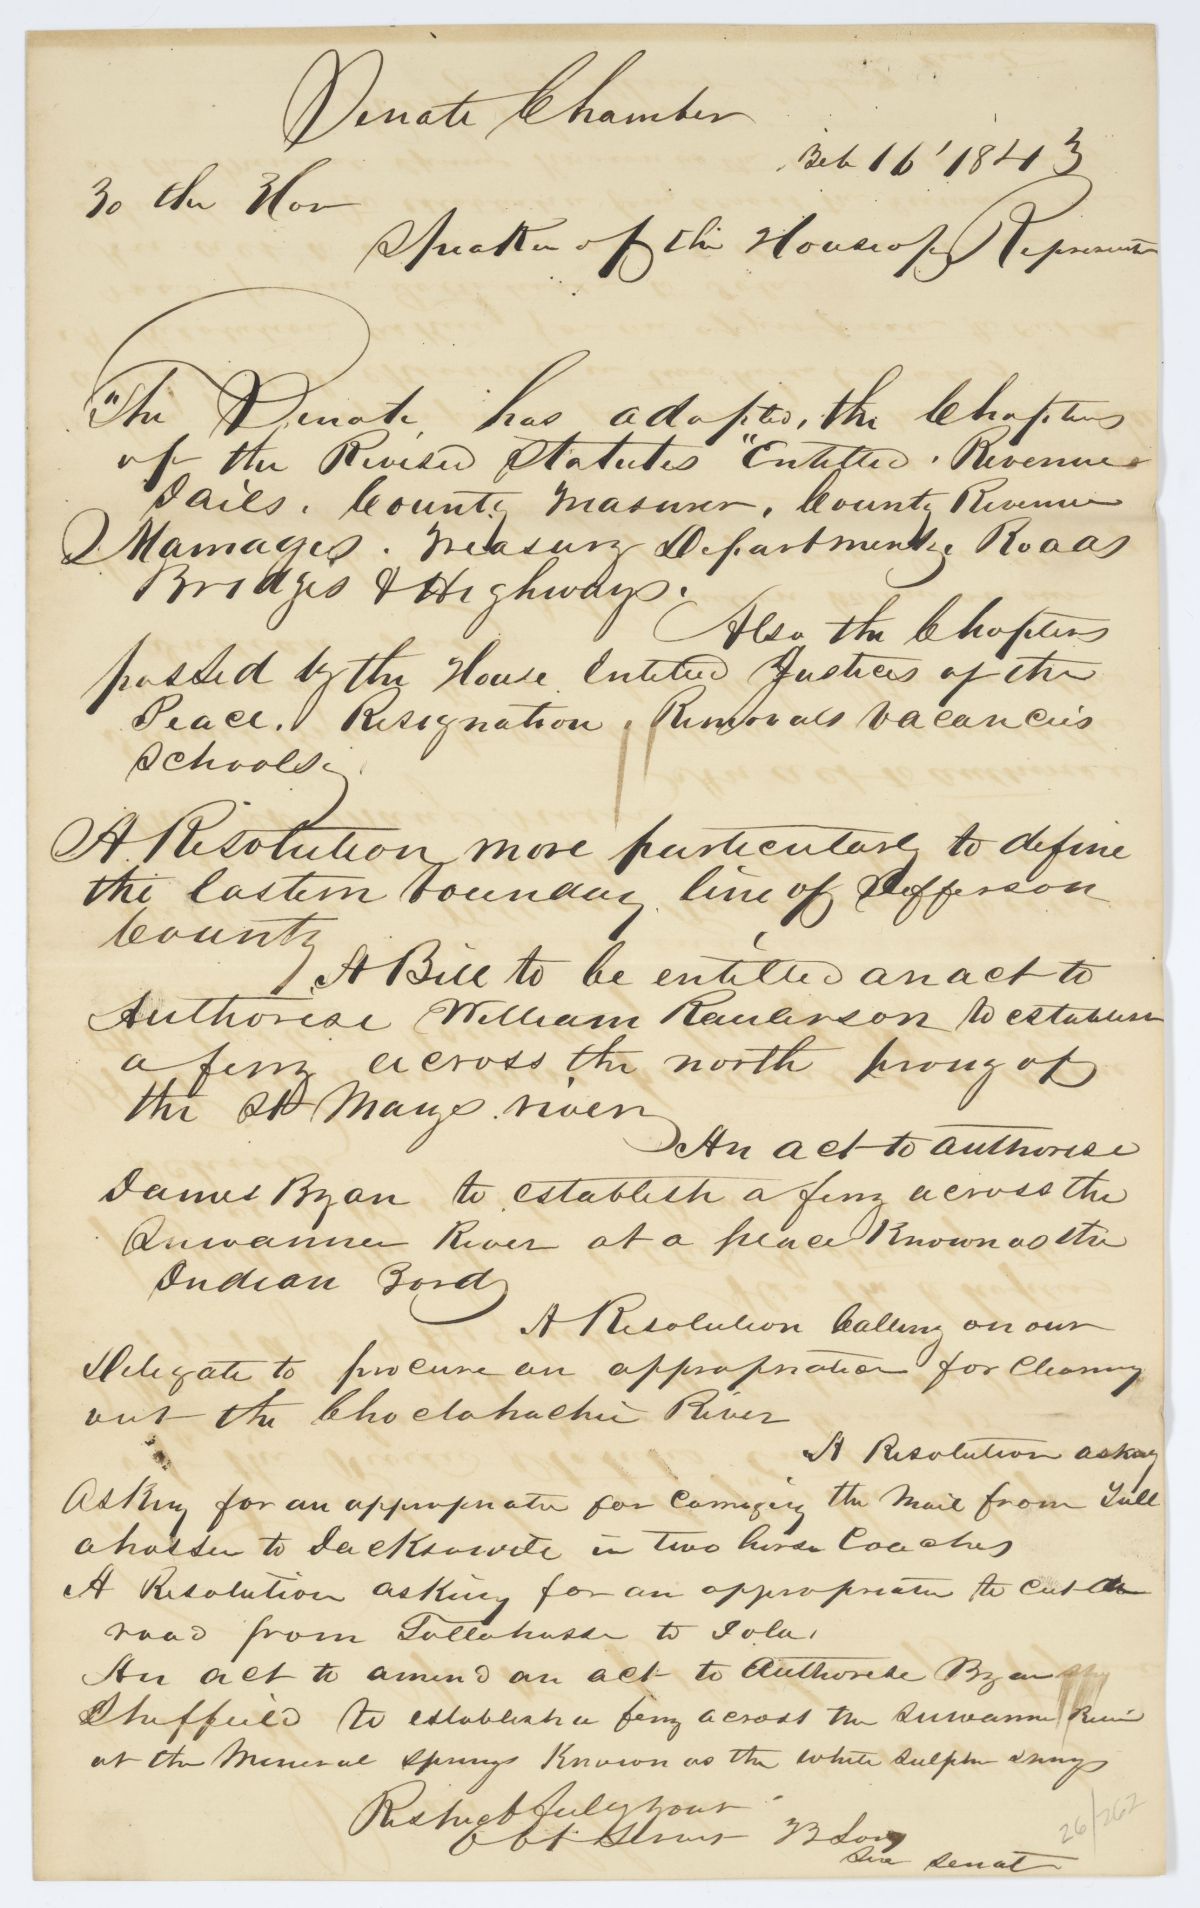 Senate Chamber
Feb 16' 1843
To the Hon
Speaker of the House of Represent
"The Senate has adopted, the Chapters
of the Revised Statutes "Entitled. Revenue
Jails. County Treasurer, County Revenue
Marriages. Treasury Department, Roads
Bridges & Highways.
Also the Chapters
passed by the House Entitled Justices of the
Peace. Resignation, Removals vacancies
Schools,
A Resolution more particularly to define
the Eastern boundary line of Jefferson
County
A Bill to be entitled an act to
Authorise William Raulerson to establish
a ferry across the north prong of
the St Marys river
An act to authorise
James Bryan to establish a ferry across the
Suwannee River at a place Known as the
Indian Ford
A Resolution Calling on our
Delegate to procure an appropriation for Cleaning
out the Choctahachie River
A Resolution asking
Asking for an appropriatin for Carrying the Mail from Tall
ahassee to Jacksonville in two horse Coaches
A Resolution asking for an appropriation to cut a
road from Tallahassee to Iola.
An act to amend an act to Authorise Bryan
Sheffield to establish a ferry across the Suwannee River
at the Mineral Springs Known as the White Sulpher Springs
Respectfully your
Obt Servt
Sec Senate
26/262